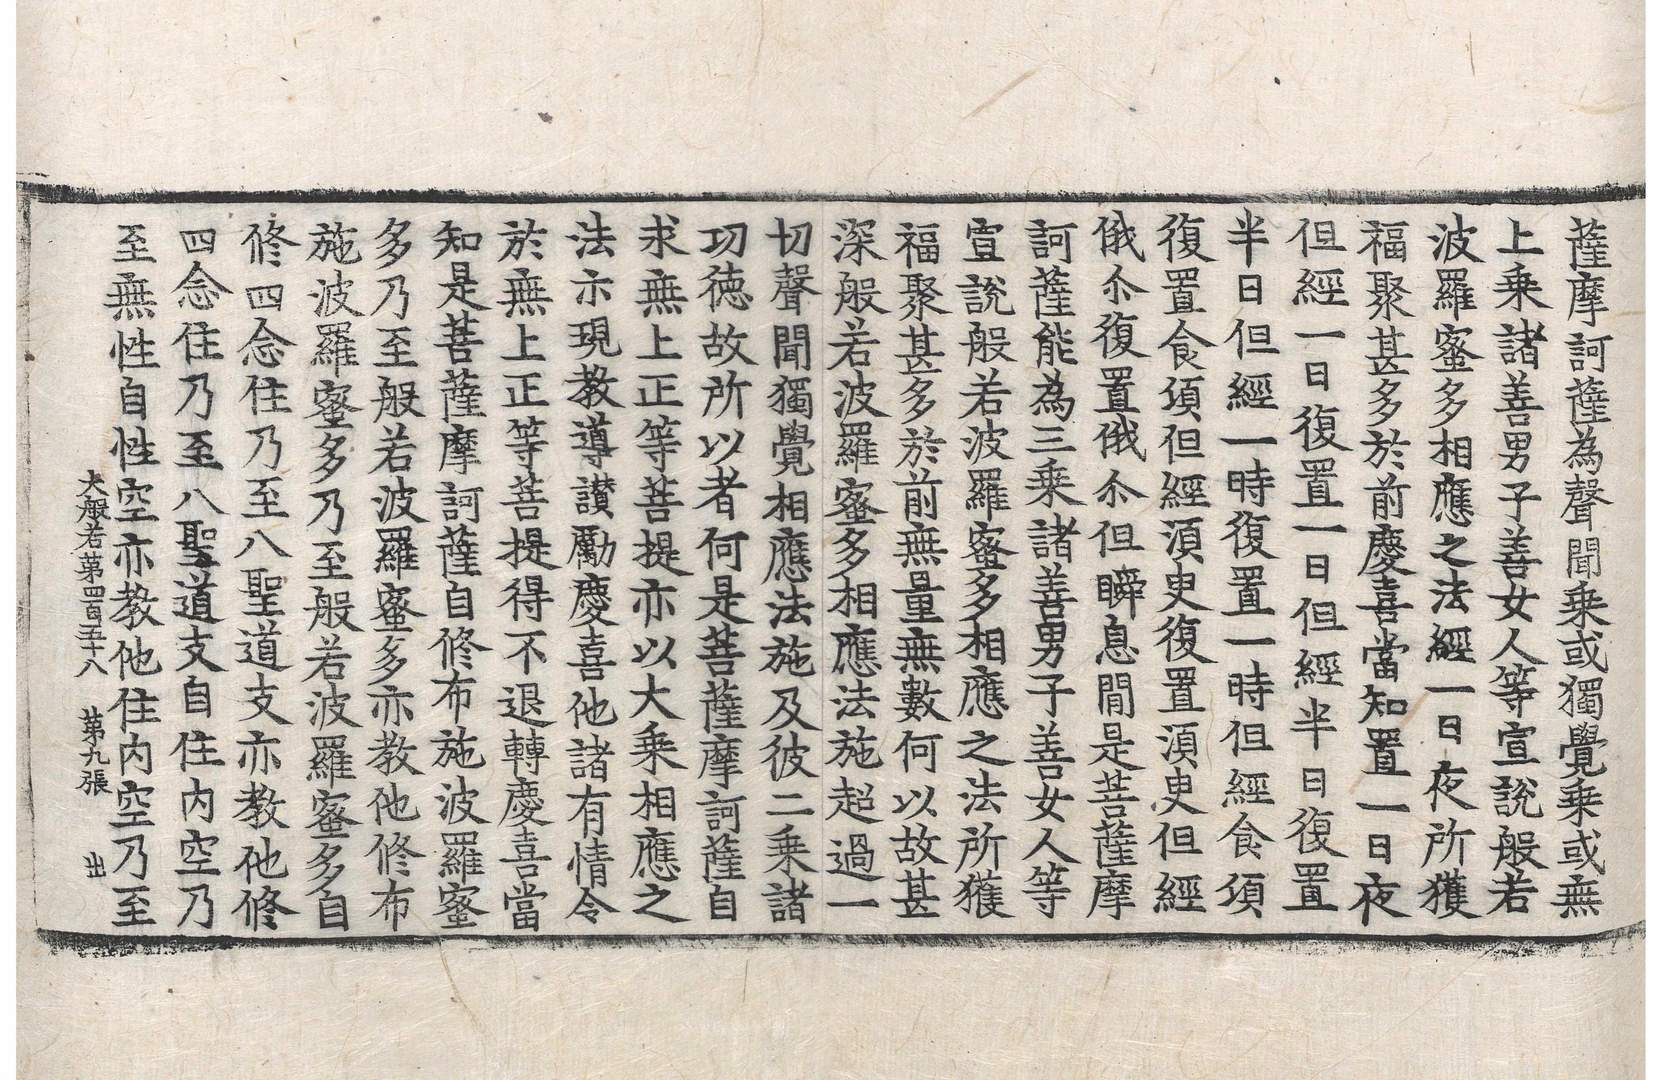 薩摩訶薩為聲聞乗或獨覺乗或無
上乗諸善男子善女人等宣說般若
波羅蜜多相應之法經一日夜所獲
福聚甚多於前慶喜當知置一日夜
但經一日復置一日但經半日復置
半日但經一時復置一時但經食頃
復置食頃但經須臾復置須臾但經
俄尒復置俄尒但瞬息閒是菩薩摩
訶薩能為三乗諸善男子善女人等
宣說般若波羅蜜多相應之法所獲
福聚甚多於前無量無數何以故甚
深般若波羅蜜多相應法施超過一
切聲聞獨覺相應法施及彼二乗諸
功德故所以者何是菩薩摩訶薩自
求無上正等菩提亦以大乗相應之
法示現教導讃勵慶喜他諸有情令
於無上正等菩提得不退轉慶喜當
知是菩薩摩訶薩自修布施波羅蜜
多乃至般若波羅蜜多亦教他修布
施波羅蜜多乃至般若波羅蜜多自
修四念住乃至八聖道支亦教他修
四念住乃至八聖道支自住內空乃
至無性自性空亦教他住內空乃至
大般若第四百五十八 第九張 出